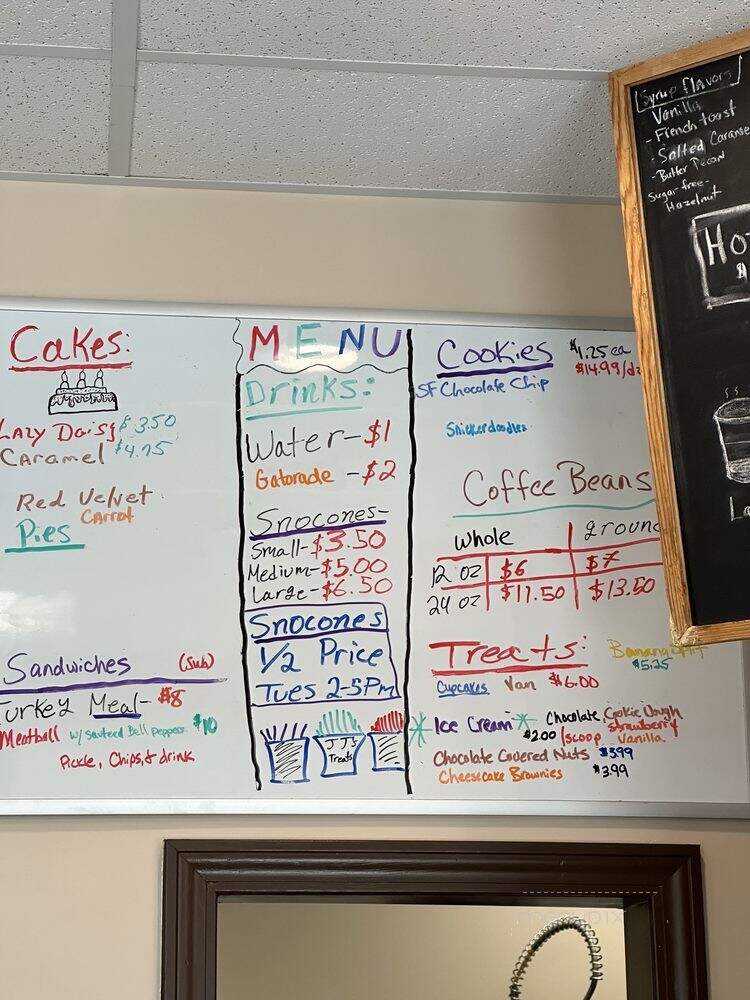 Cakes:
Lazy Daisy $3.50
Caramel $4.75
Red Velvet
Carrot
Pies
Sandwiches (Sub)
Turkey Meal- $8
Meatball w/ Sauteed Bell Peppers $10
Pickle, Chips, & drink
MENU
Drinks:
Water- $1
Gatorade - $2
Snocones-
Small- $3.50
Medium- $5.00
Large- $6.50
Snocones
1/2 Price
Tues 2-5pm
JJ's
Treats
Cookies $1.25 ea
$14.99/dz
SF Chocolate Chip
Snickerdoodles
Coffee Beans
whole ground
12 oz $6 $7
24 oz $11.50 $13.50
Treats: Banana Split
$5.25
Cupcakes Van $6.00
Ice Cream Chocolate, Cookie Dough
Strawberry
$2.00 /scoop Vanilla
Chocolate Covered Nuts $3.99
Cheesecake Brownies $3.99
Syrup flavors
Vanilla
- French toast
- Salted Carame
- Butter Pecan
Sugar-free-
Hazelnut
Ho
$
La